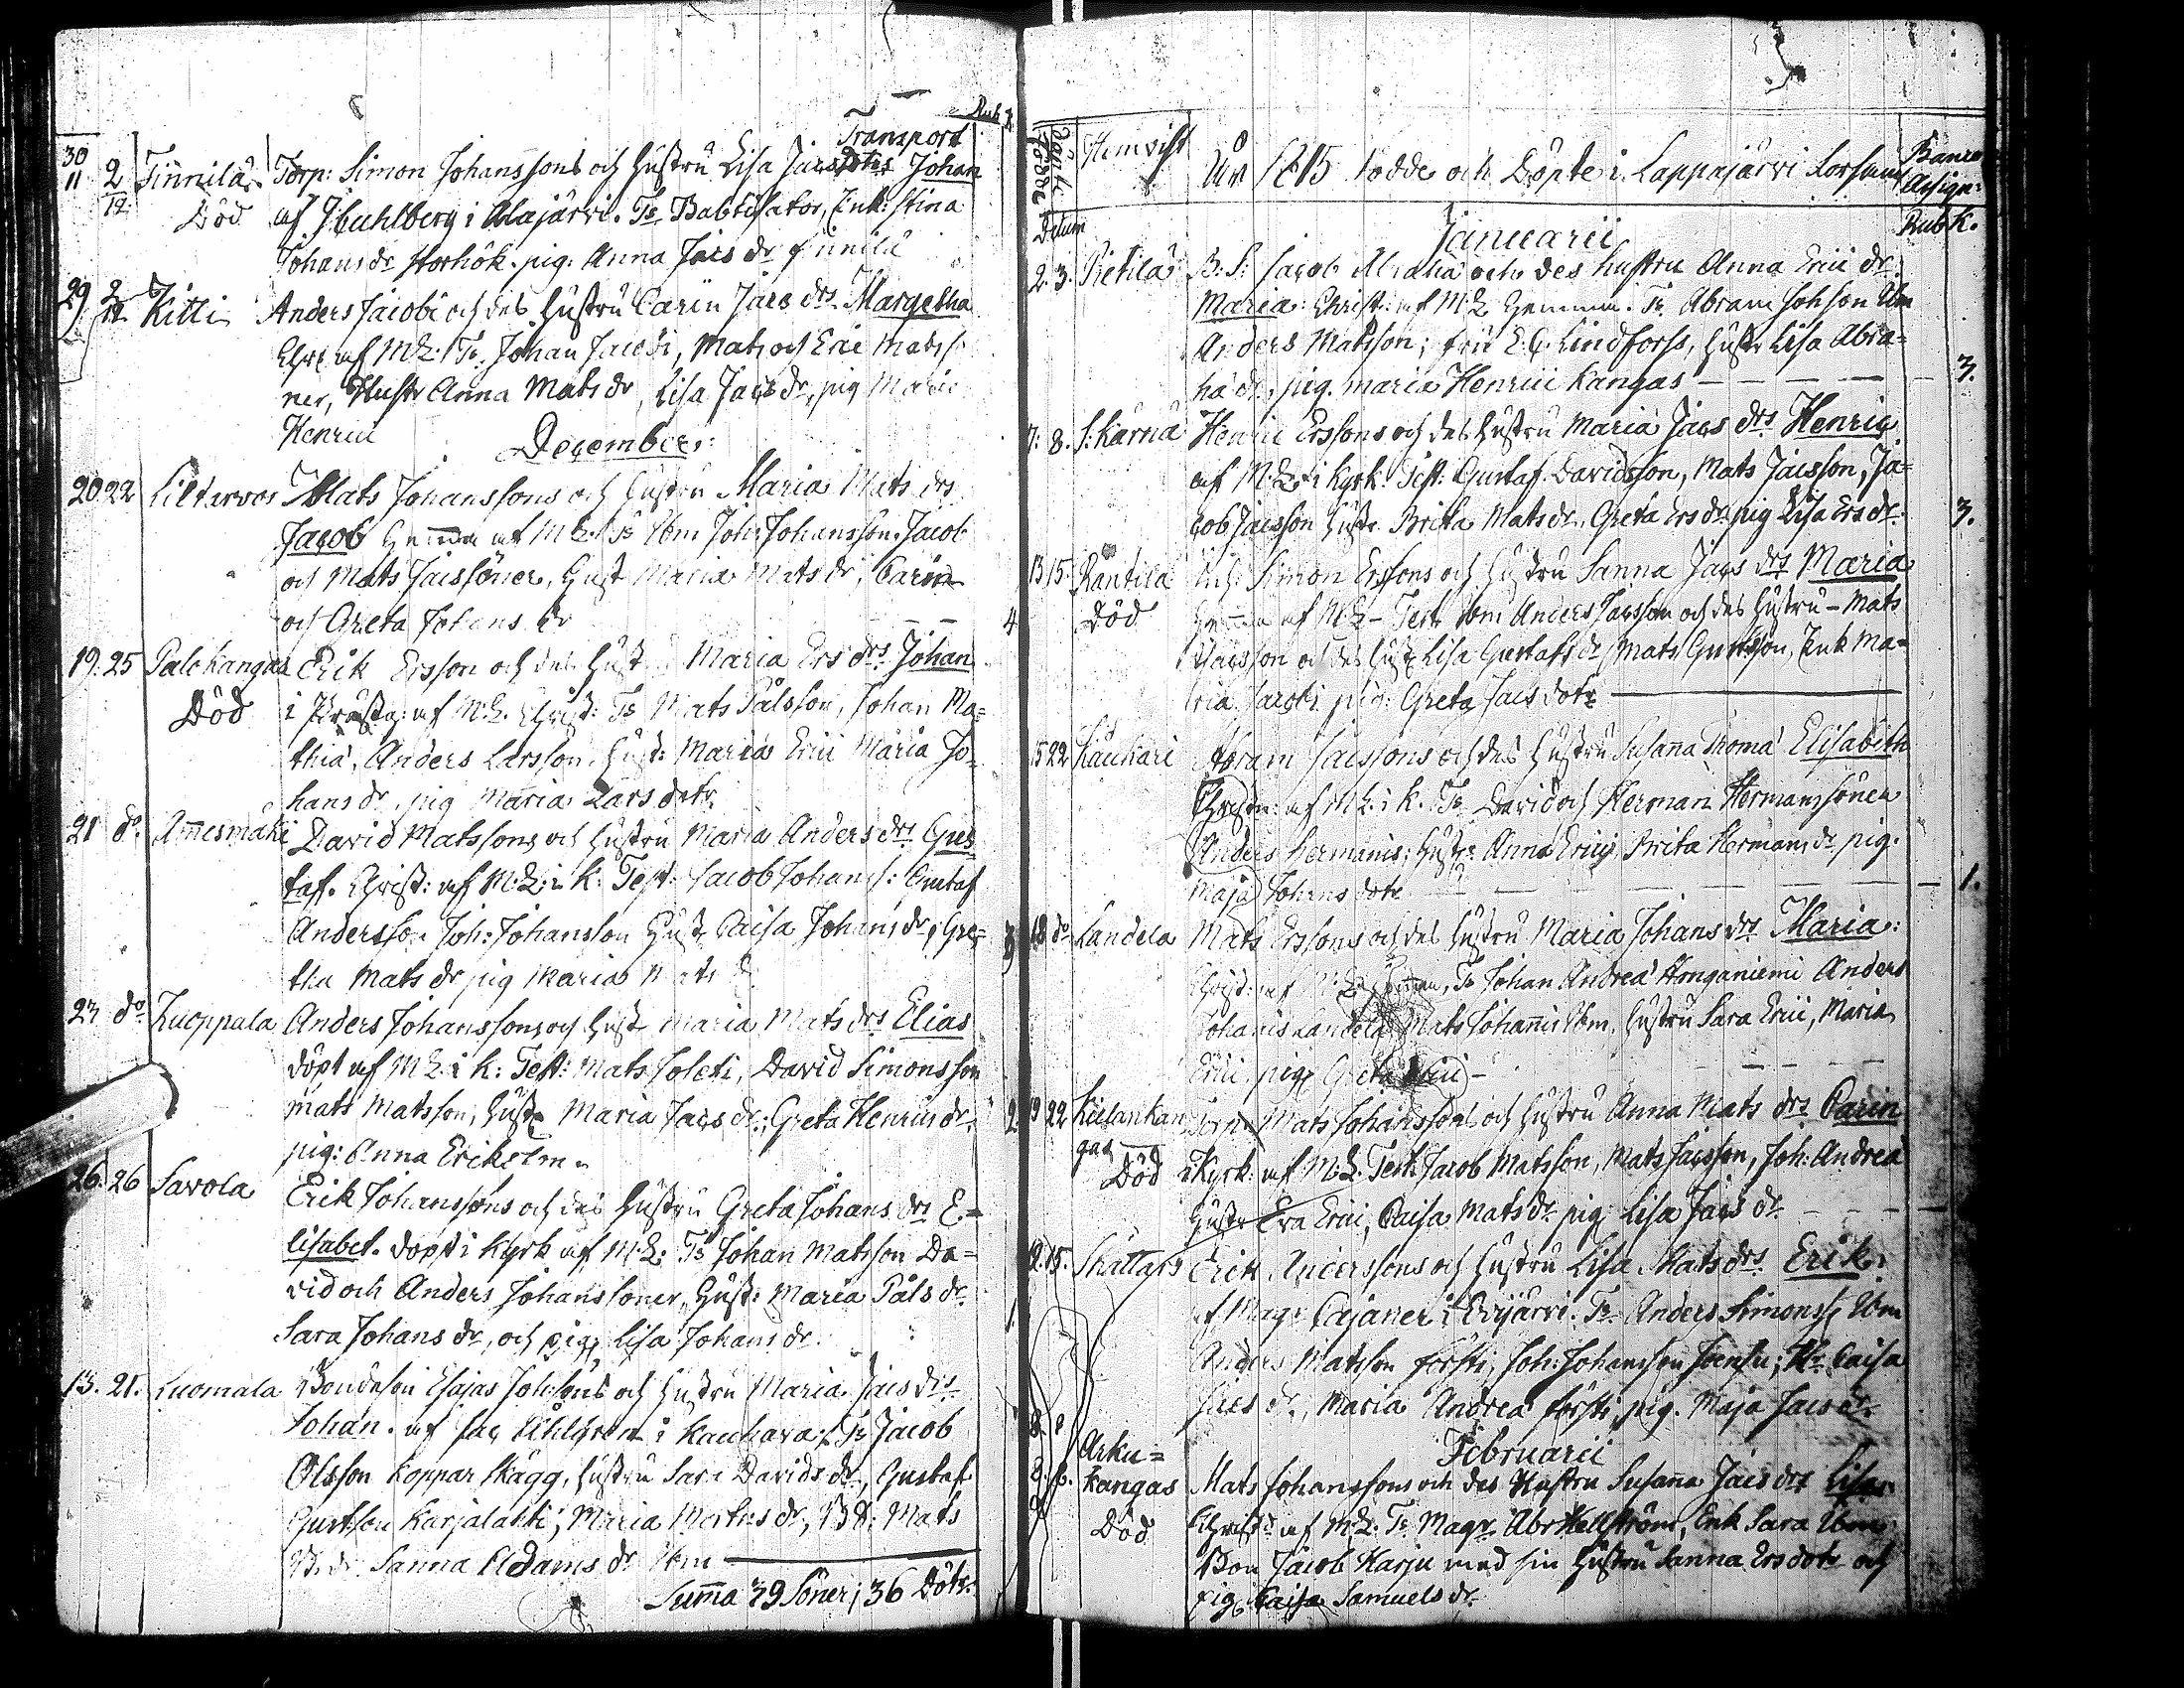 Rub k
Transport
30/11 2/12 Finnilä Torp: Simon Johanssons och Hustru Lisa Jacs dotrs Johan
Död af J Cuhlberg i Alajärvi. Ts Babtisator, Enk: Stina
Johans dr Storhök. pig: Anna Jacs dr Finnilä
29 2/12 Kitti Anders Jacobi och des Hustru Carin Jacs drs Margetha
Chr: af M.L. Ts Johan Jacobi, Mats och Eric Matss:
ner, Hustr Anna Mats dr, Lisa Jacs dr, pig Maria
Henrici
December:
20. 22 Mats Johanssons och Hustru Maria Mats drs
Jacob Hemma af M.L. Ts Ibm Joh: Johansson, Jacob
och Mats Jacssöner, Hust Maria Mats dr, Carin
och Greta Johans dr — — 4
19. 25 Palokangas Erik Ersson och des Hust Maria Ers drs Johan
Död i Prästg: af M.L. Christ: Ts Mats Pålsson, Johan Ma=
thiæ, Anders Larsson, Hust: Maria Erici Maria Jo=
hans dr, pig Maria Lars dotr.
21 do. Ammesmäki David Matssons och Hustru Maria Anders drs Gus
taf. Christ: af M.L. i K: Test: Jacob Johans: Gustaf
Andersson Joh: Johansson Hustr Caisa Johans dr, Gre= 3
tha Mats dr pig Maria Mats d
23 do Kuoppala Anders Johanssons och Hust Maria Mats drs Elias
döpt af M L. i k: Test: Mats David Simonsson
Mats Matsson, Hustr Maria Jacs dr, Greta Henrics dr, 2
pig: Anna Erikolm.
26. 26 Savola Erik Johanssons och des Hustru Greta Johans drs E=
lisabet. Döpt i Kyrk af M.L: Ts Johan Matsson Da=
vid och Anders Johanssoner, Hust: Maria Påls dr
Sara Johans dr, och pig, Lisa Johans dr. 1
13. 21. Luomala Bondeson Esajas Joh:sons och Hustru Maria Jacs drs
Johan. af Jac Ahlgren i Kauhava. Ts Jacob
Olsson Koppar Skägg, Hustru Sara Davids dr, Gustaf
Gustson Karjalahti, Maria Mats dr, Mats
Sanna Adams dr Ibm
Summa 39 Söner; 36 Dötr.
Födde Döpte Hemvist År 1815 Födde och Döpte i Lappajärvi Sochn Banco Assign:
Datum Januarii Rub K.
2. 3. Pietilä B: S: Jacob Abrahā och des hustru Anna Erici dr
Maria: Christ: af M.L Hemma. Ts Abram Johson Ibm
Anders Matsson; fru E.C. Lindforss, Hustr Lisa Abra=
hā dr, pig. Maria Henrici Kangas — — — — 3.
7. 8. S: Kärnä Henric Erssons och des Hustru Maria Jacs drs Henric
af M.L. i Kyrk. Test: Gustaf Davidsson, Mats Jacsson, Ja=
cob Jacsson Hustr Brita Mats dr, Greta Ers dr pig Lisa Ers dr. 3.
13 15. Räntilä Simon Erssons och Hustru Sanna Jacs drs Maria
Död Hemma af M.L - Test Ibm Anders Jacsson och des Hustru - Mats
Jacsson och des Hustr Lisa Gustafs dr Mats Gustson, Enk Ma=
ria Jacobi pig: Greta Jacs dotr
15 22 Kauhari Abram Jacssons och des Hustru Susanna Thomæ Elisabeth
Christn: af M.L. i k. Ts David och Herman Hermanssöner
Anders Hermanis; Hustr: Anna Erici, Brita Hermans dr, pig.
Maja Johans dotr — — — — 1.
18 do Sandela Mats Erssons och des Hustru Maria Johans drs Maria:
Christ: af M.L. Hemma, Ts Johan Andreæ Honganiemi Anders
Johannis Sandela, Mats Johannis Ibm, Hustru Sara Erici, Maria
Erici pig: Greta Erici — — — —
19 22 Kiilankan Torp. Mats Johanssons och Hustru Anna Mats drs Carin
gas Död i Kyrk: af M.L. Test: Jacob Matsson, Mats Jacsson, Joh: Andreæ
Hustr Eva Erici, Caisa Mats dr, pig: Lisa Jacs dr — — —
12. 15. Skattars Erik Anderssons och Hustru Lisa Mats drs Erik.
af Magr Cajaner i Evijärvi. Ts Anders Simonss Ibm
Anders Matsson Försti, Joh: Johansson Hr Caisa
Jacs dr, Maria Andreæ Försti, pig. Maja Jacs dr.
Februarii
Arku=
kangas Mats Johanssons och des Hustru Susanna Jacs drs Lisa
Död Christ: af M.L. Ts Magr. Abr Hellström, Enk Sara Ibm
Bon Jacob Harju med sin Hustru Sanna Ers dotr och
pig, Caisa Samuels dr